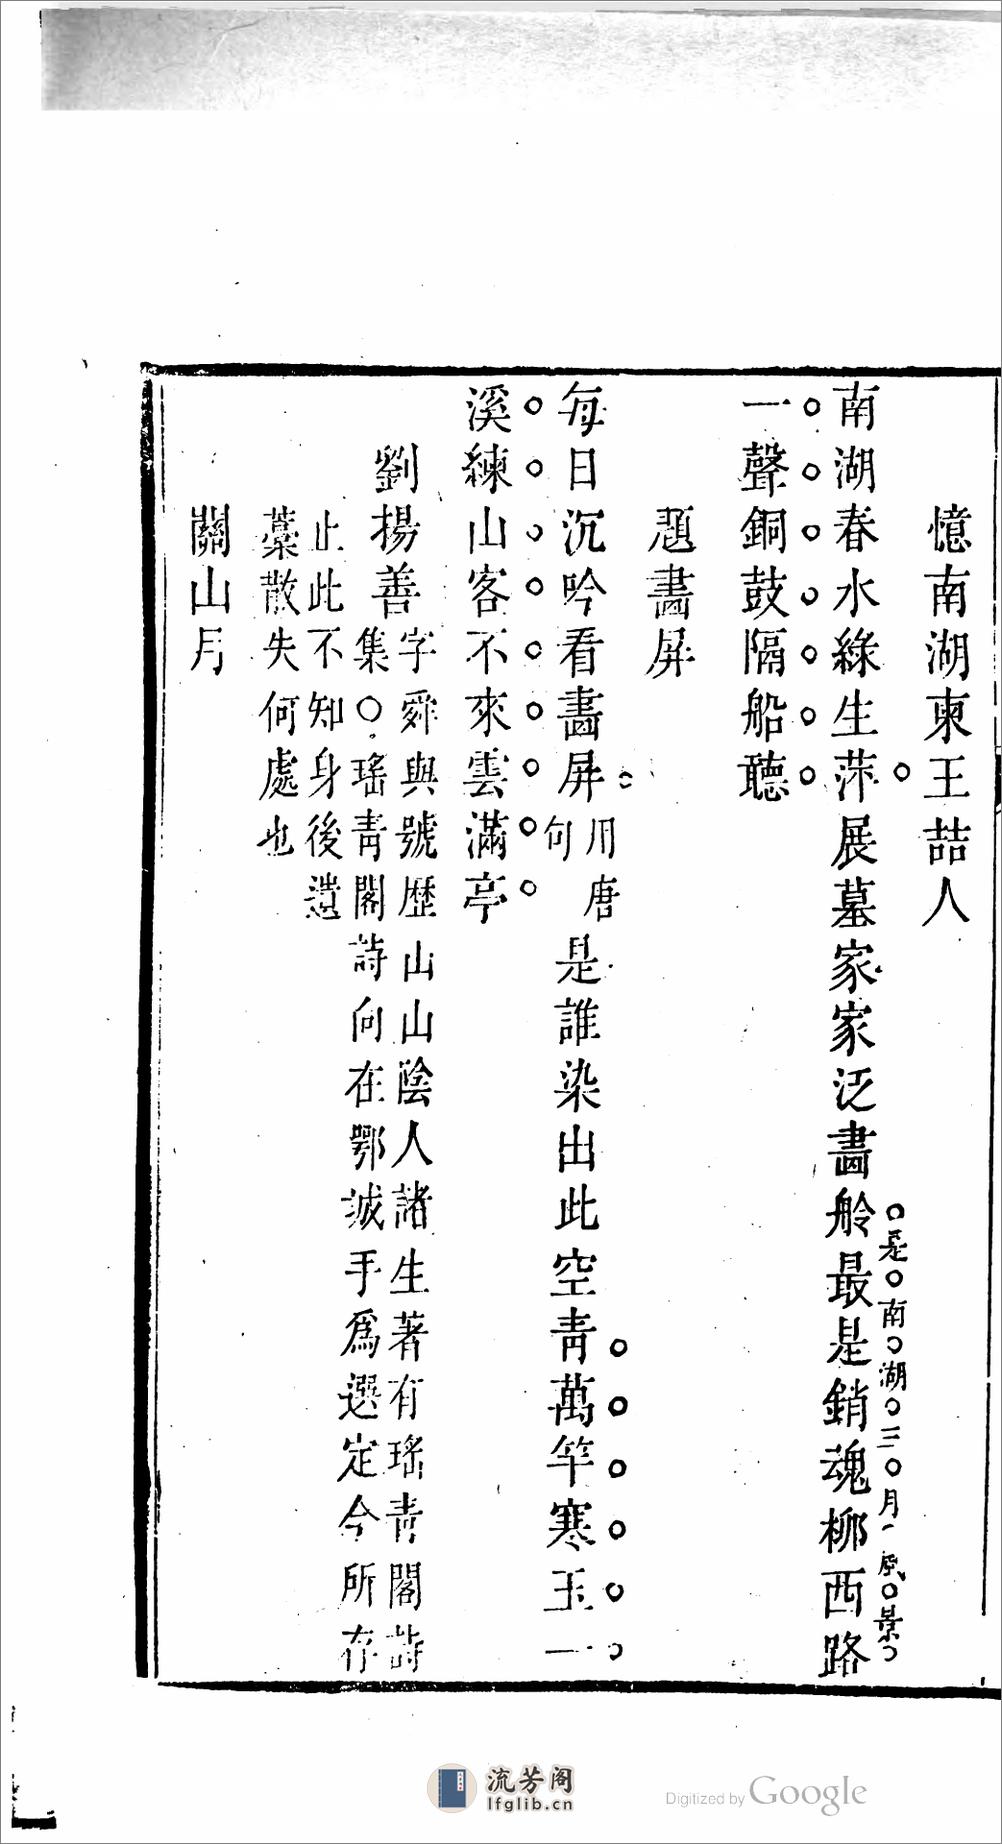 憶南湖柬王喆人
南湖春水綠生萍展墓家家泛畫舲最是銷魂柳西路
是南湖三月風景
一聲銅鼓隔船聽
題畫屏
每日沉吟看畫屏用唐句是誰染出此空青萬竿寒玉一
溪練山客不來雲滿亭
劉揚善字舜與號歷山山陰人諸生著有瑤青閣詩
集○瑤青閣詩向在鄂誠手為選定今所存
止此不知身後遺
藁散失何處也
關山月
流芳阁
lfglib.cn
Digitized by Google